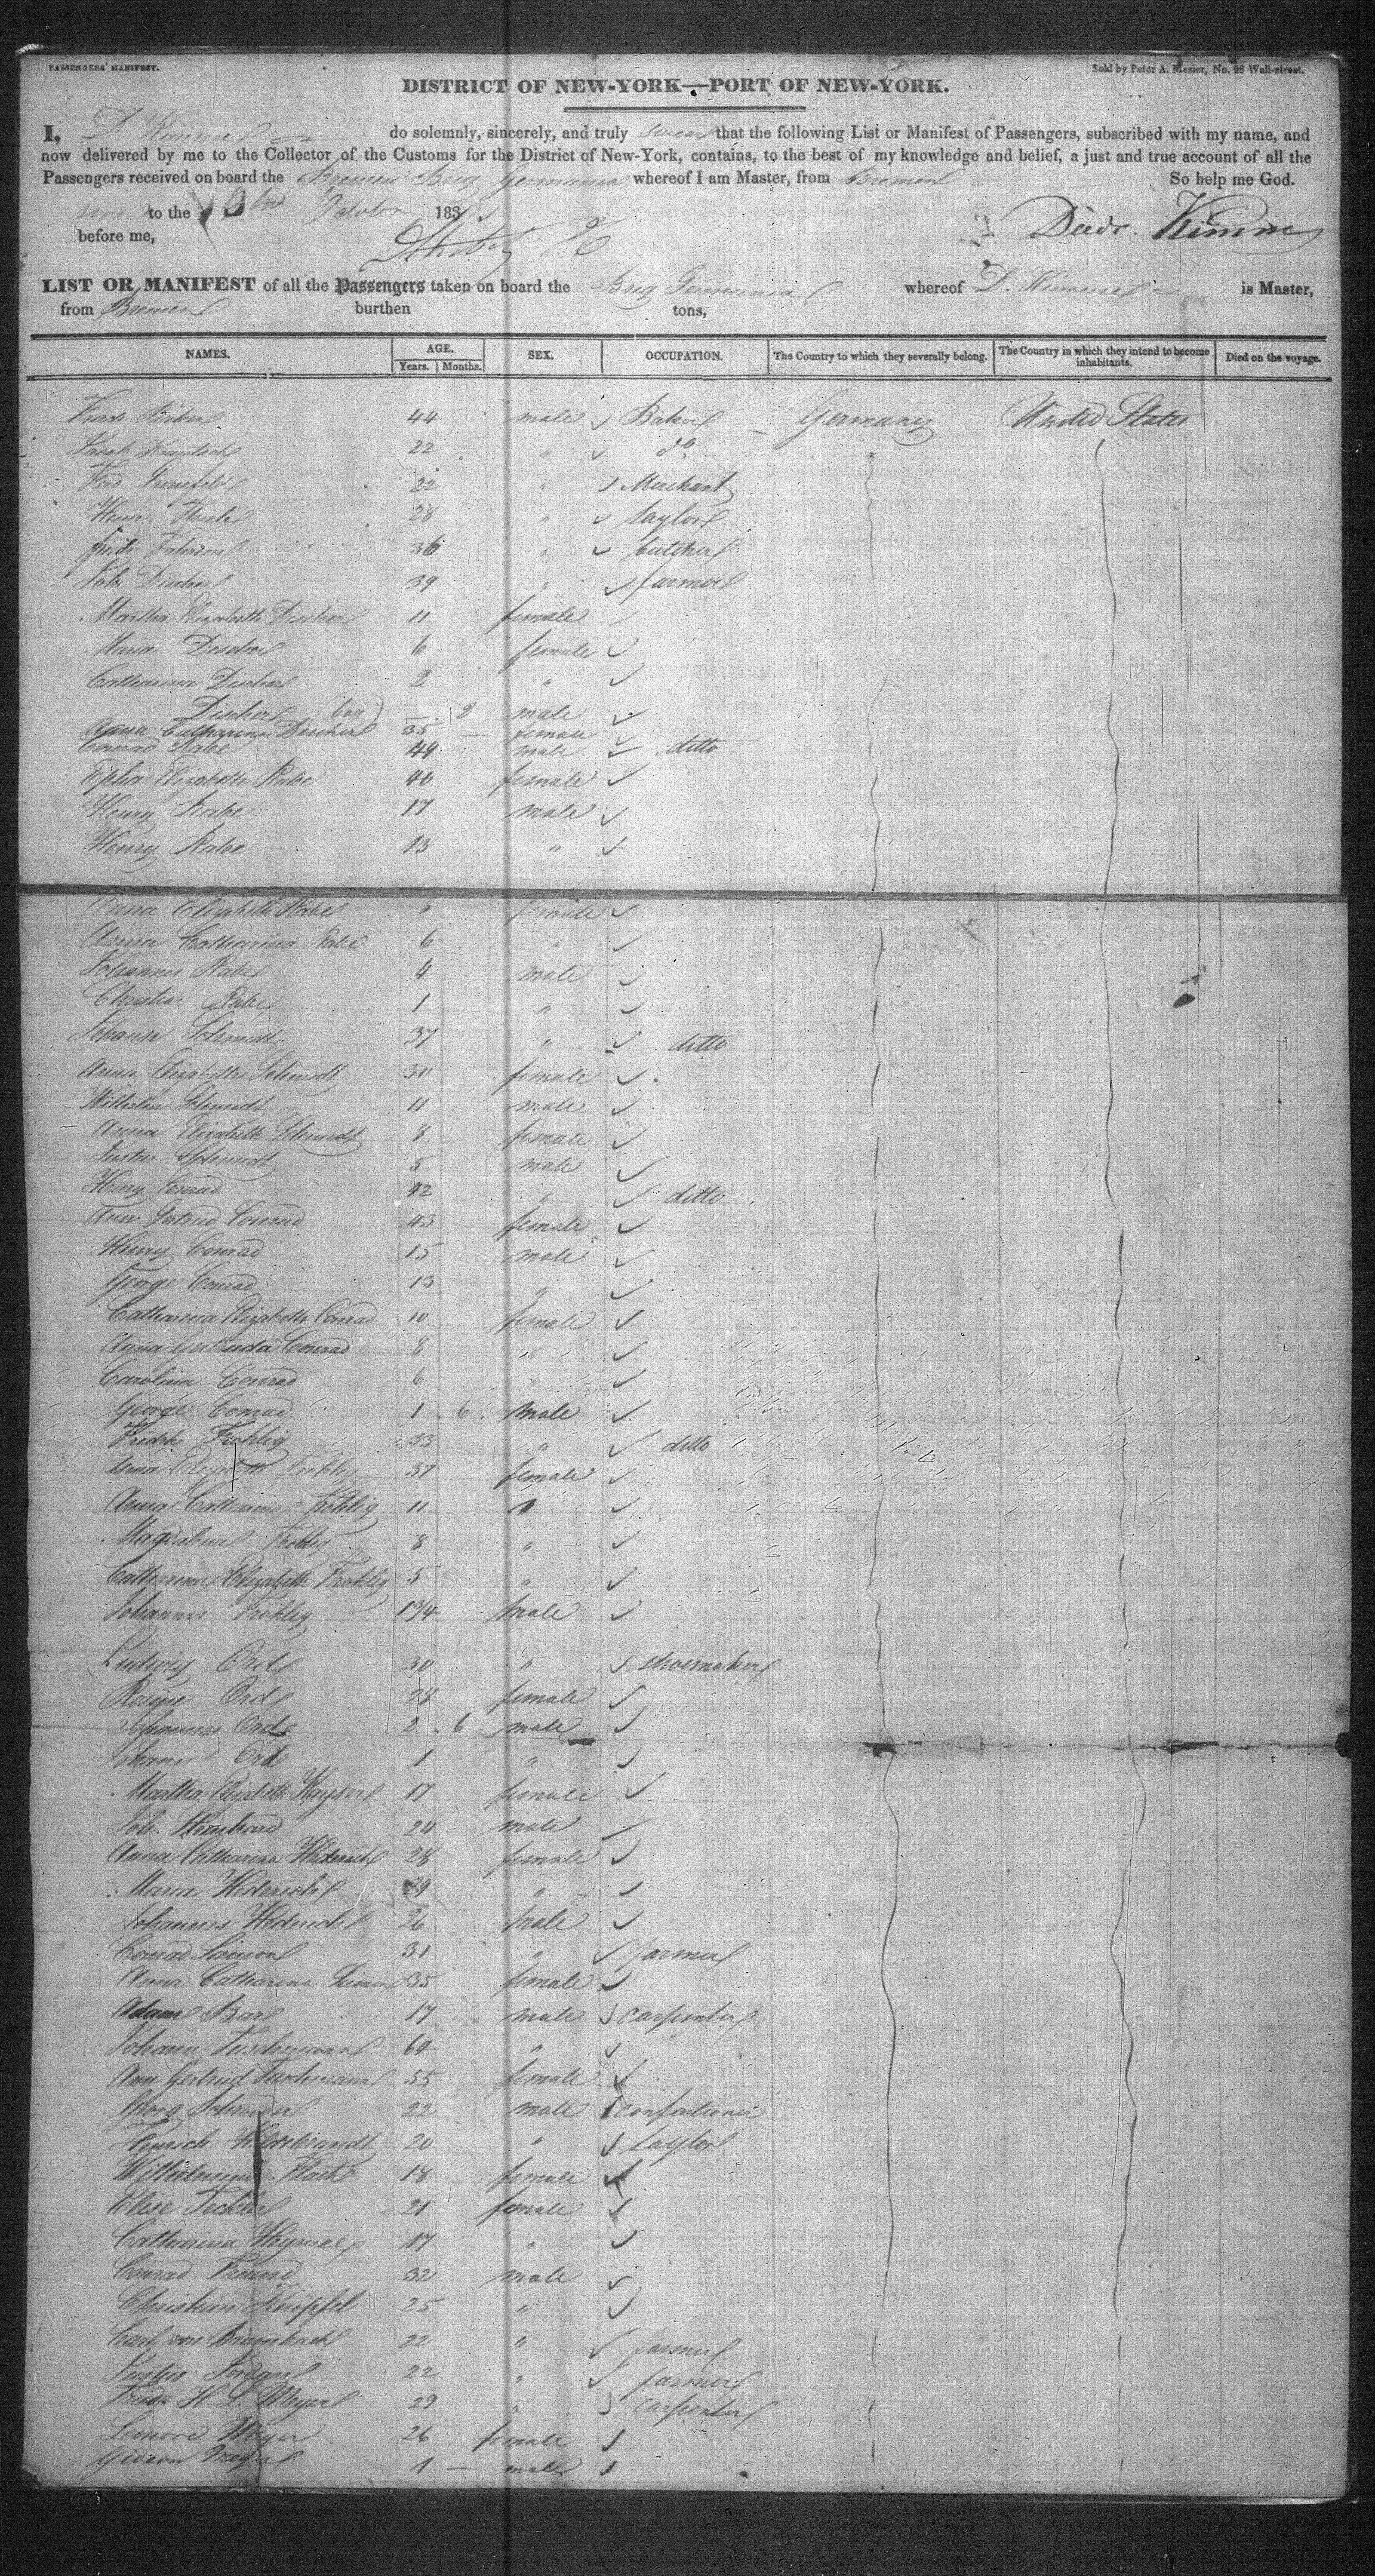 PASSENGERS' MANIFEST.
Sold by Peter A. Mesier, No. 28 Wall-street.
DISTRICT OF NEW-YORK—PORT OF NEW-YORK.
I, D. Kimme do solemnly, sincerely, and truly swear that the following List or Manifest of Passengers, subscribed with my name, and
now delivered by me to the Collector of the Customs for the District of New-York, contains, to the best of my knowledge and belief, a just and true account of all the
Passengers received on board the Bremen Brig Germania whereof I am Master, from Bremen So help me God.
to the October 183
before me, Diedr. Kimme
LIST OR MANIFEST of all the Passengers taken on board the Brig Germania whereof D. Kimme is Master,
from Bremen burthen tons,
NAMES. AGE. SEX. OCCUPATION. The Country to which they severally belong. The Country in which they intend to become inhabitants. Died on the voyage.
Years. Months.
44 male Baker Germany United States
22 " do
22 " Merchant
28 " taylor
36 " butcher
Joh. Discher 39 " farmer
Martha Elizabeth Discher 11 female
Maria Discher 6 female
Catharina Discher 2 "
Discher (boy) — 2 male
Anna Catharina Discher 35 — female
Conrad Rabe 49 male ditto
Elizabeth Rabe 40 female
Henry Rabe 17 male
Henry Rabe 13 "
Anna Elizabeth Rabe " female
Anna Catharina Rabe 6 "
Johannes Rabe 4 male
Christian Rabe 1 "
Johann Schmidt 37 " ditto
Anna Elizabeth Schmidt 30 female
Wilhelm Schmidt 11 male
Anna Elizabeth Schmidt 8 female
Justus Schmidt 5 male
Henry Conrad 42 " ditto
Ana Gertrud Conrad 43 female
Henry Conrad 15 male
George Conrad 13 "
Catharina Elizabeth Conrad 10 female
Anna Gertruda Conrad 8 "
Carolina Conrad 6 "
George Conrad 1 6 male
Fredk Frohlig 33 " ditto
Anna Elizabeth Frohlig 37 female
Anna Catharina Frohlig 11 "
Magdalena Frohlig 8 "
Catharina Elizabeth Frohlig 5 "
Johannes Frohlig 1 3/4 male
Ludwig Orde 30 " shoemaker
Orde 28 female
Johannes Orde 2 6 male
Johann Orde 1 "
Martha Elizabeth Kayser 17 female
Joh. Steinhard 24 male
Anna Catharina Hederich 28 female
Maria Hederich 29 "
Johannes Hederich 26 male
Conrad Simon 31 " farmer
Anna Catharina Simon 35 female
Adam 17 male carpenter
Johann 60 "
Ann Gertrud 55 female
Georg Schroeder 22 male confectioner
Henrich Hildebrandt 20 " taylor
Wilhelmine 18 female
Elise 21 female
Catharina 17 "
Conrad Freund 32 male
Christian 25 "
Carl von Baumbach 22 " farmer
Justus Jordan 22 " farmer
Friedr H. L. Meyer 29 " carpenter
Leonore Meyer 26 female
Gideon Meyer 1 — male